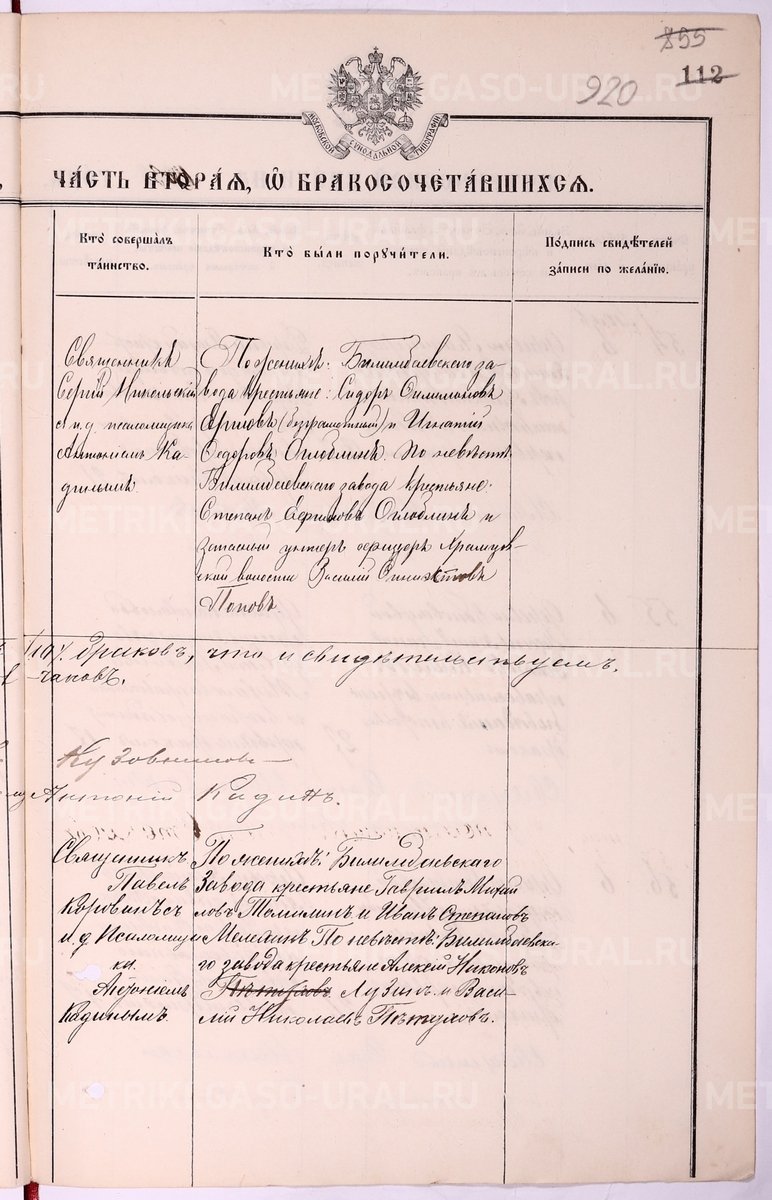 855
112
920
МОСКОВСКОЙ СѴНОДАЛЬНОЙ ТИПОГРАФІИ
ЧА́СТЬ ВТОРА́Я, Ѡ БРАКОСОЧЕТА́ВШИХСЯ.
Кто̀ соверша́лъ
та́инство.
Кто̀ бы́ли поручи́тели.
По́дпись свидѣ́телей
за́писи по жела́нїю.
Священникъ
Сергій Никольскій
с и. д. псаломщика
Антоніемъ Ка-
динымъ.
По женихѣ: Билимбаевскаго за-
вода крестьяне: Сидоръ
(безграмотный) и Игнатій
Ѳедоровъ Оглоблинъ. По невѣстѣ:
Билимбаевскаго завода крестьяне:
Степанъ Ефимовъ Оглоблинъ и
запасный унтеръ офицеръ Крамцов-
ской волости Василій
Поповъ
браковъ, что и свидѣтельствуемъ.
Кузовниковъ
Антоній Кадинъ.
Священникъ
Павелъ
Коровинъ съ
и. д. Псаломщи
ка
Антоніемъ
Кадинымъ
По женихѣ: Билимбаевскаго
Завода крестьяне Гавріилъ Михай
ловъ Томилинъ и Иванъ Степановъ
Мелехинъ По невѣстѣ: Билимбаевска-
го завода крестьяне Алексѣй Никоновъ
Пѣтуховъ Лузинъ и Васи-
лій Николаевъ Пѣтуховъ.
METRIKI.GASO-URAL.RU